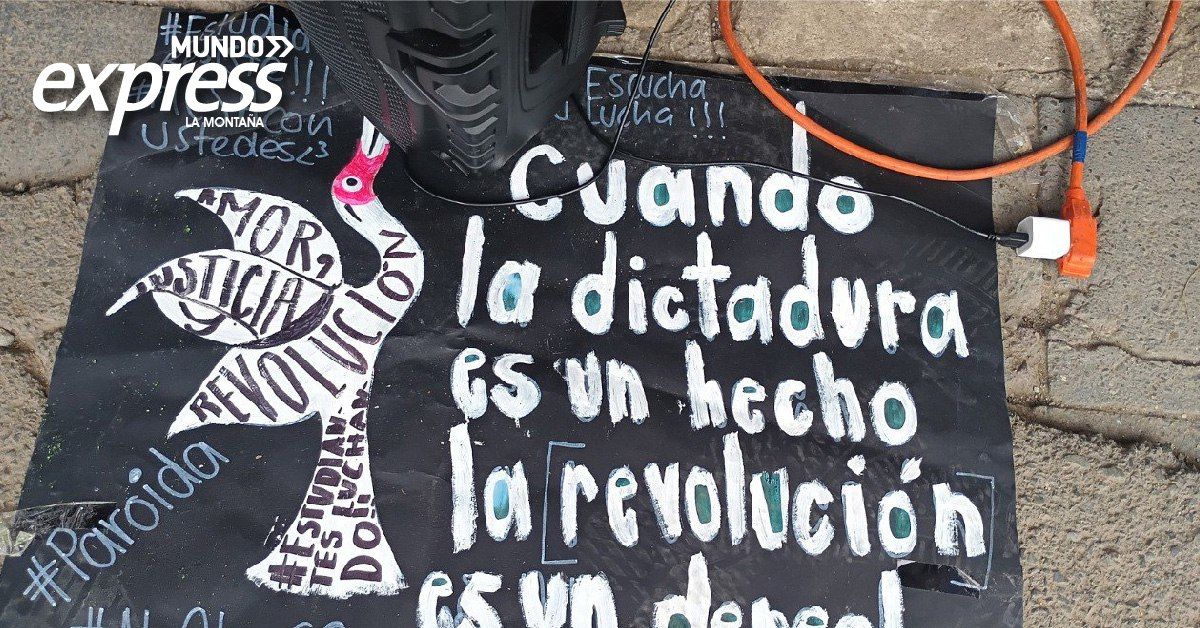 MUNDO
express
LA MONTAÑA
#Estudia
!!!
con
ustedes<3
Escucha
y Lucha!!!
AMOR,
JUSTICIA
y
REVOLUCIÓN
#ESTUDIAN
TES LUCHAN
DO!!
#Paroida
Cuando
la dictadura
es un hecho
la [revolución]
es un